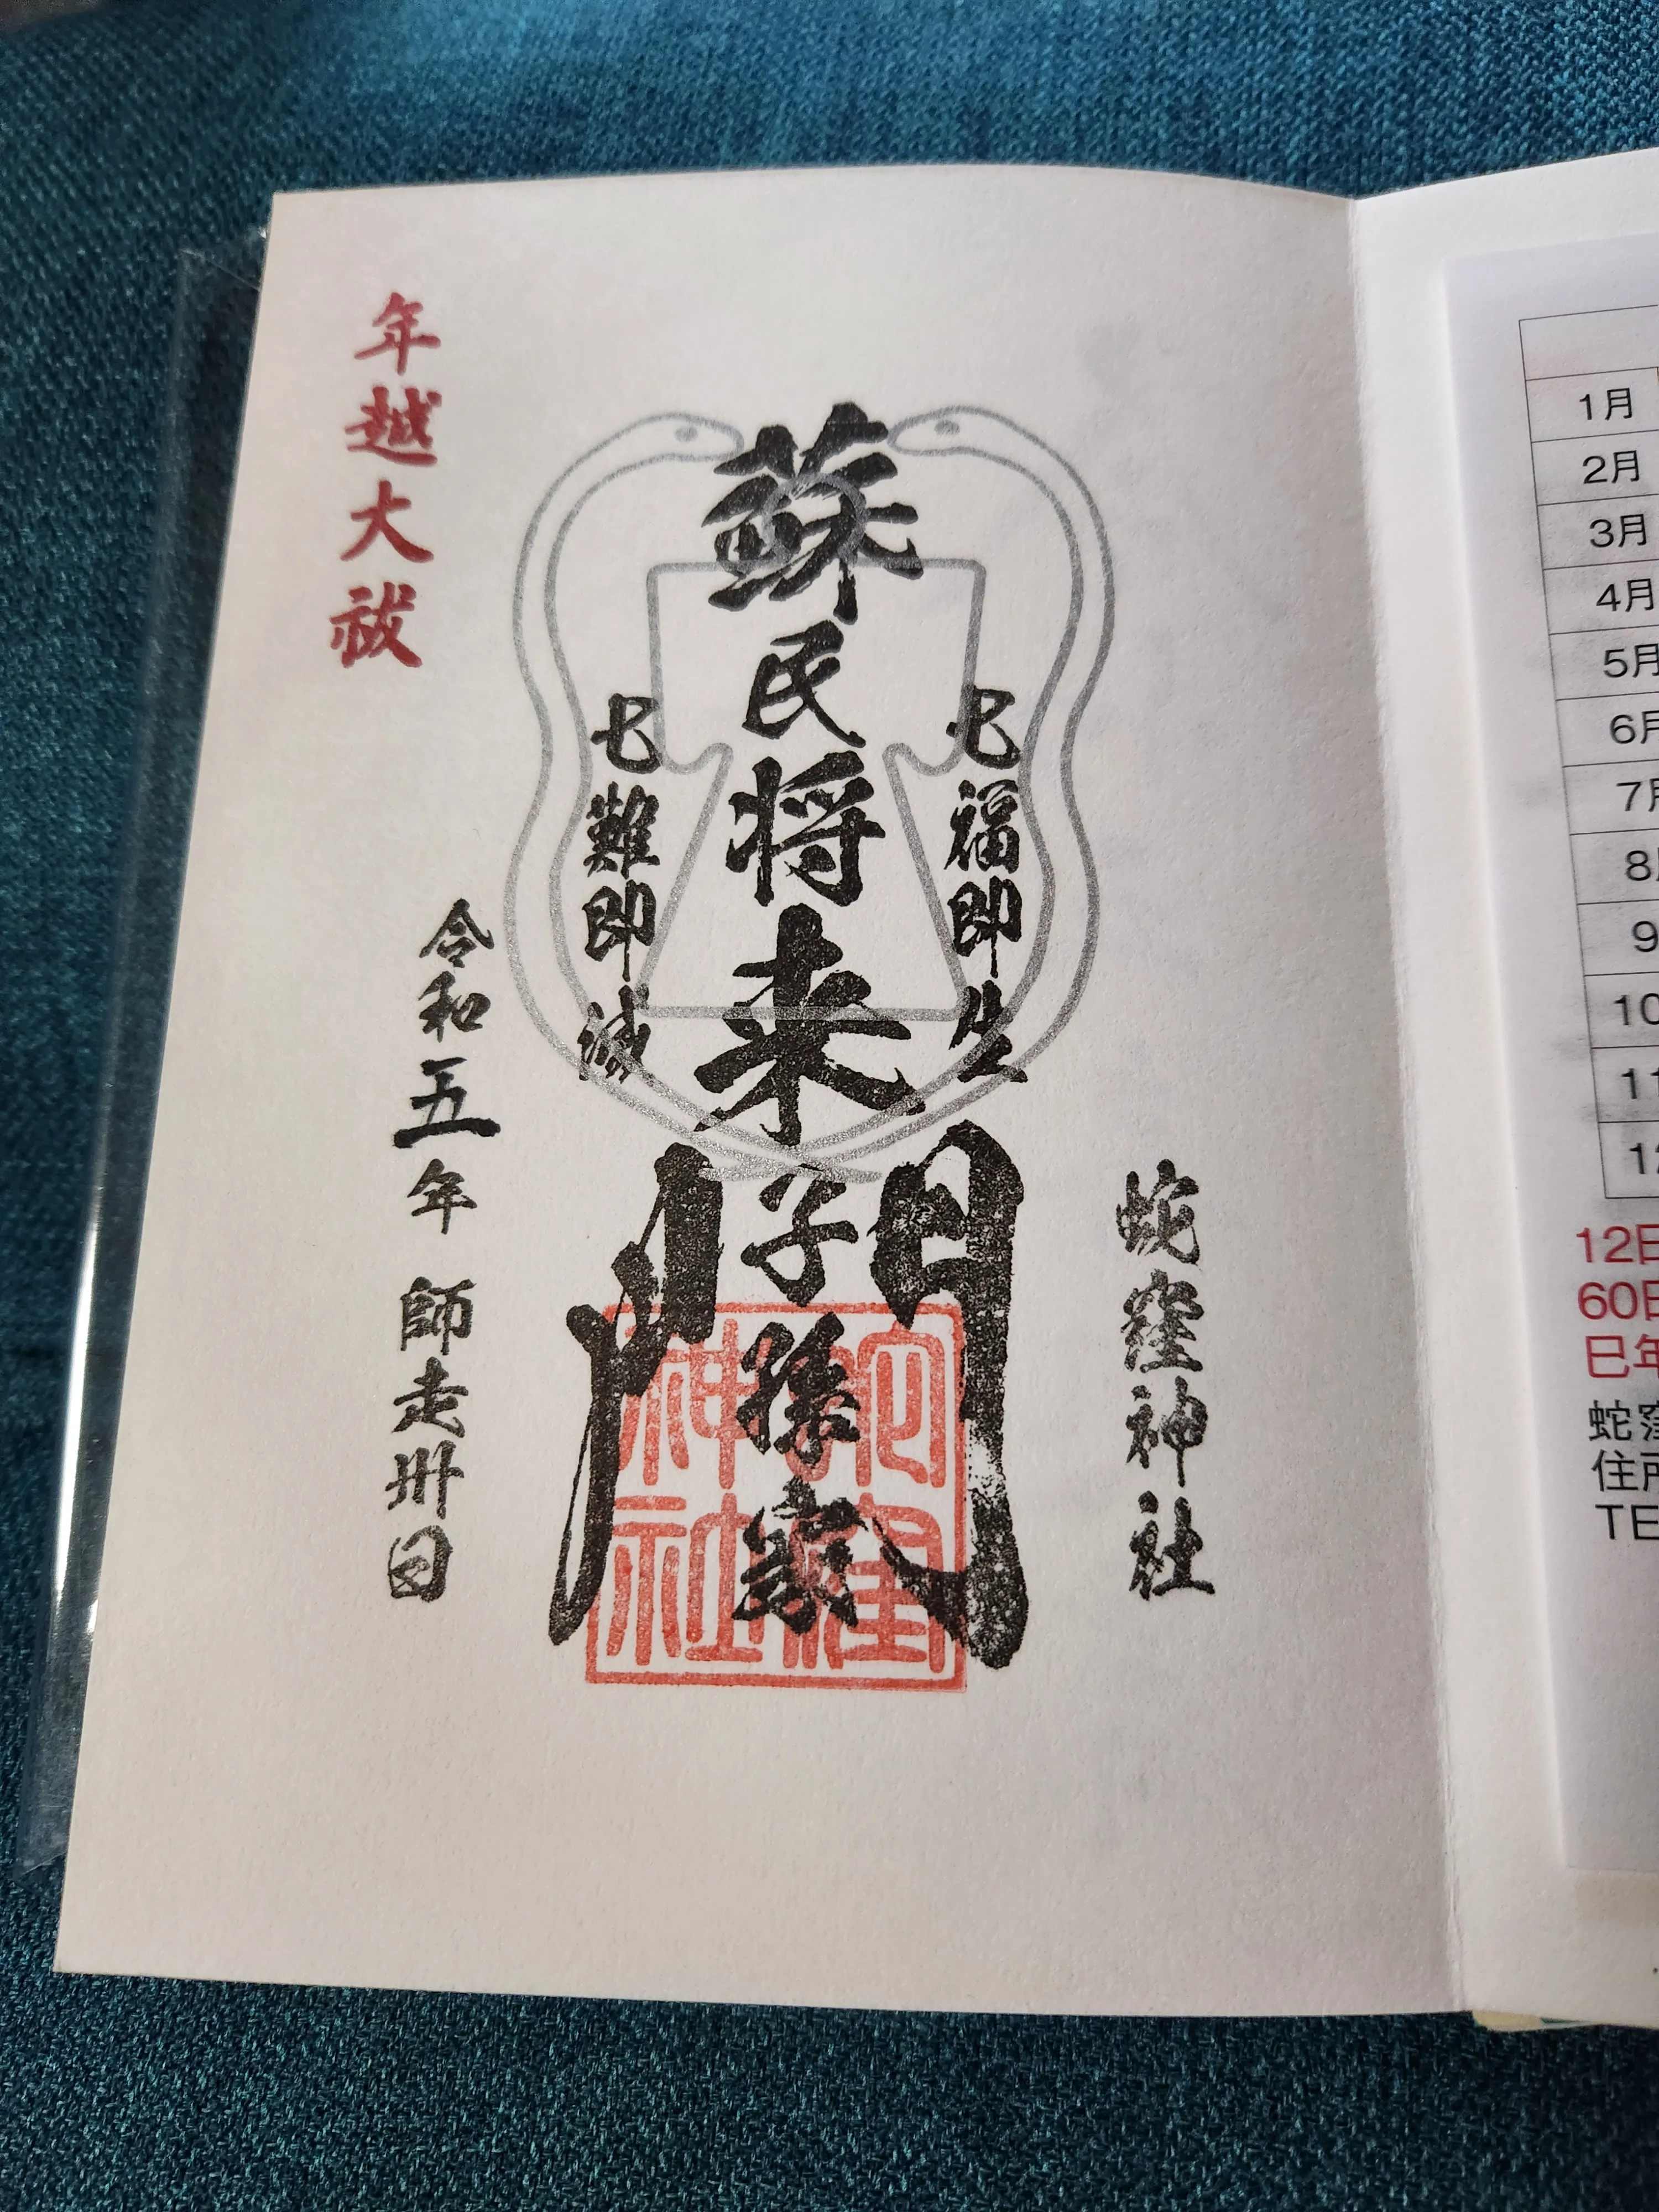 蛇窪神社
七福即生
蘇民将来子孫家門
七難即滅
令和五年 師走卅日
年越大祓
蛇窪神社
1月
2月
3月
4月
5月
6月
7月
8月
9
10
11
12
12日
60日
巳年
蛇窪
住所
TE